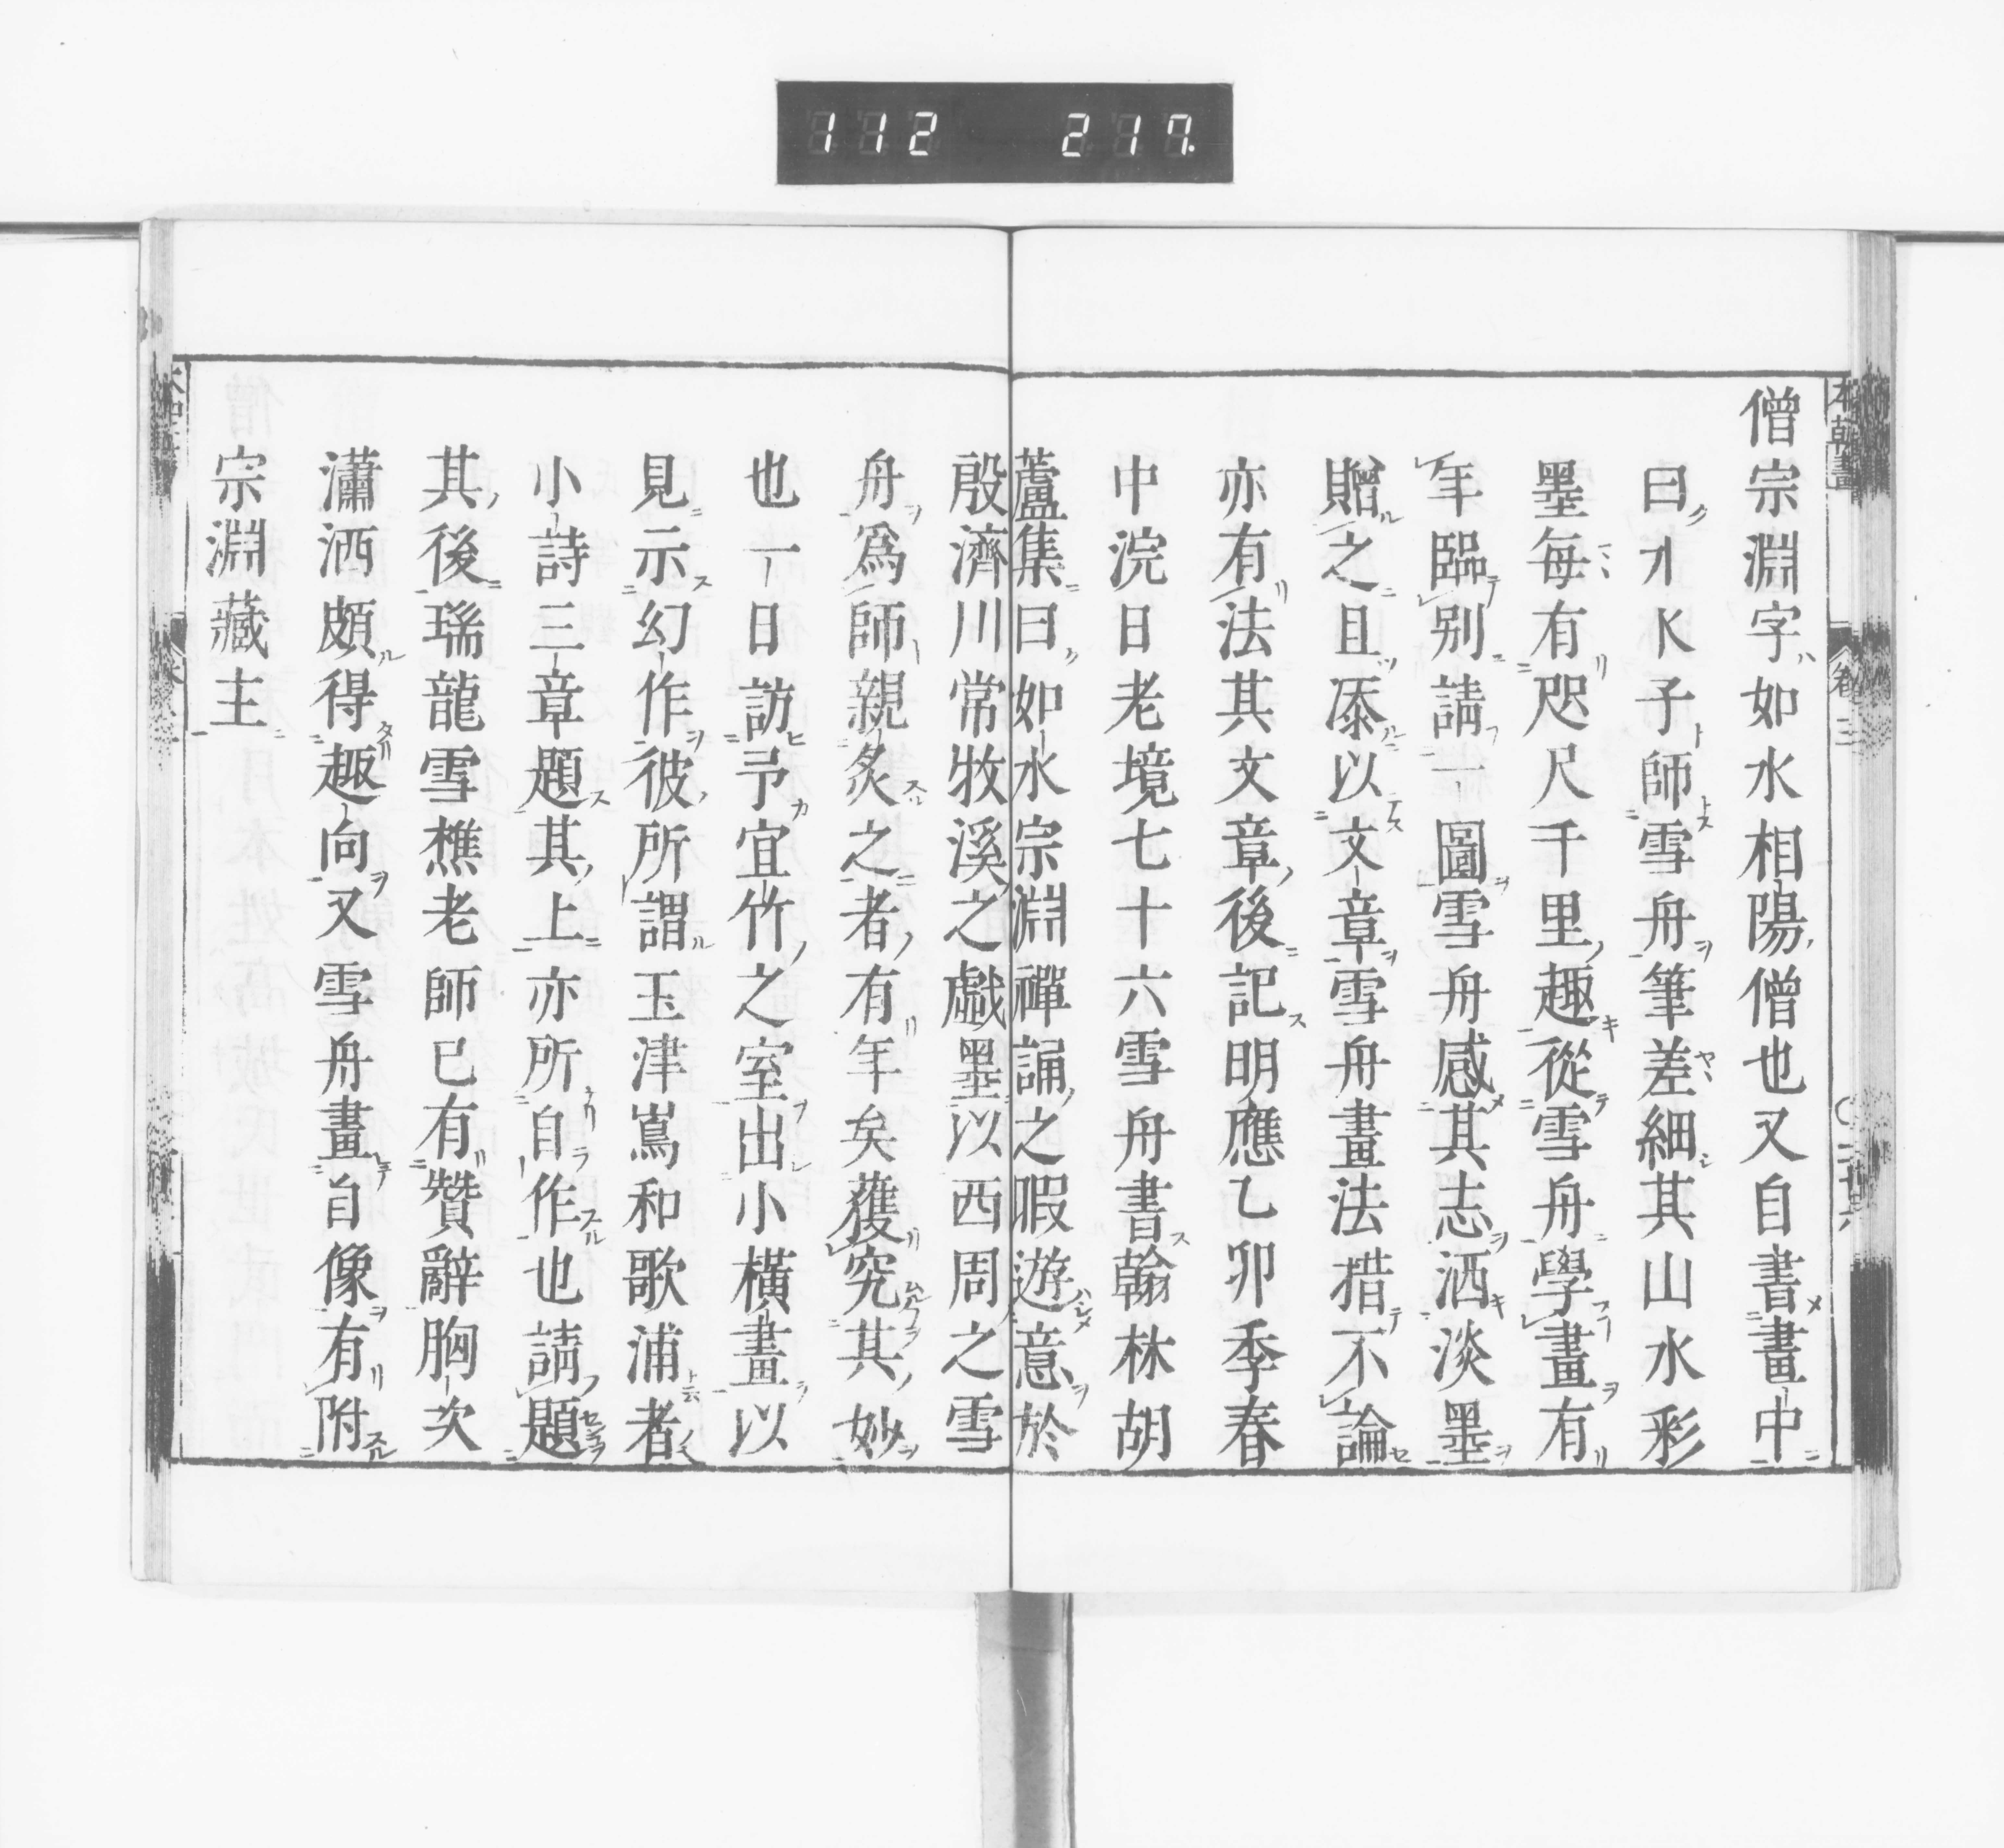 112 217.
本朝畫
卷三
僧宗淵字如水相陽僧也又自書畫中
曰水子師雪舟筆差細其山水彩
墨毎有咫尺千里趣從雪舟學畫有
年臨别請一圖雪舟感其志洒淡墨
贈之且以文章雪舟畫法措不論
亦有法其文章後記明應乙卯季春
中浣日老境七十六雪舟書翰林胡
蘆集曰如水宗淵禪誦之暇遊意於
殷濟川常牧溪之戯墨以西周之雪
舟爲師親炙之者有年矣獲究其妙
也一日訪予宜竹之室出小横畫以
見示幻作彼所謂玉津嶌和歌浦者
小詩三章題其上亦所自作也請題
其後瑞龍雪樵老師已有贊辭胸次
瀟洒頗得趣向又雪舟畫自像有附
宗淵藏主